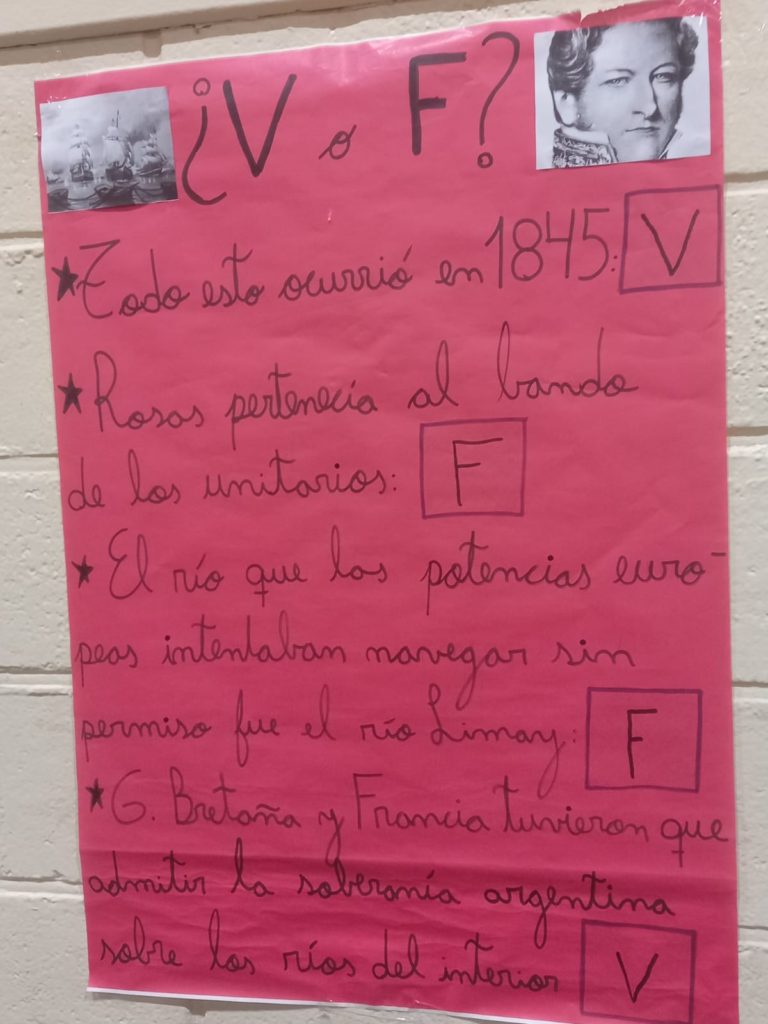 ¿V o F?
★Todo esto ocurrió en 1845: V
★ Rosas pertenecía al bando
de los unitarios: F
★ El río que las potencias euro-
peas intentaban navegar sin
permiso fue el río Limay: F
★ G. Bretaña y Francia tuvieron que
admitir la soberanía argentina
sobre los ríos del interior V